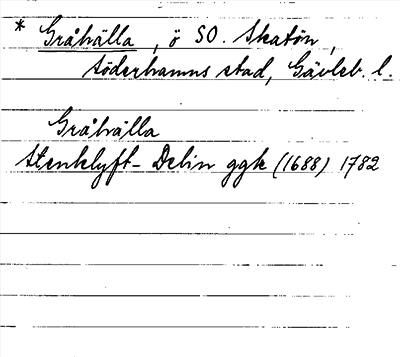 * Gråhälla, ö SO. Skatön,
Söderhamns stad, Gävleb. l.
Gråhälla
Stenklyft - Delin ggk (1688) 1782